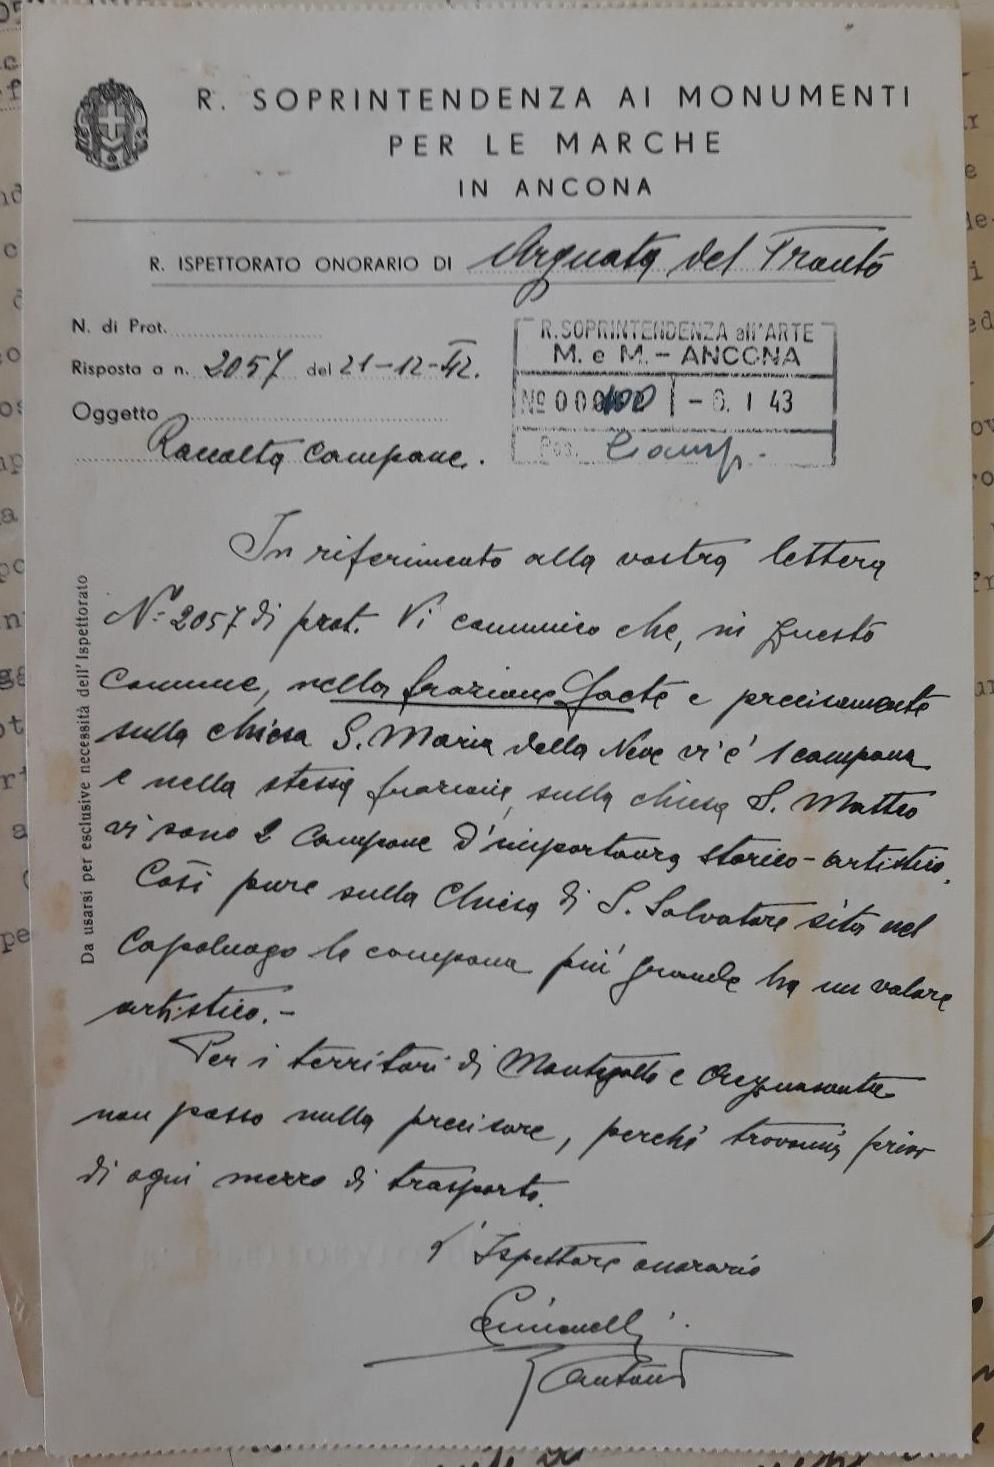 R. SOPRINTENDENZA AI MONUMENTI
PER LE MARCHE
IN ANCONA
R. ISPETTORATO ONORARIO DI Arquata del Tronto
N. di Prot.
Risposta a n. 2057 del 21-12-42.
Oggetto
Raccolta Campane.
R. SOPRINTENDENZA all'ARTE
M. e M. - ANCONA
No 000 100 - 6. 1 43
Pos. Camp.
Da usarsi per esclusive necessità dell'Ispettorato
In riferimento alla vostra lettera
N. 2057 di prot. Vi comunico che, in questo
Comune, nella frazione e precisamente
sulla chiesa S. Maria della Neve vi è 1 campana
e nella stessa frazione, sulla chiesa S. Matteo
vi sono 2 Campane d'importanza storico-artistico.
Così pure sulla Chiesa di S. Salvatore sita nel
Capoluogo la campana più grande ha un valore
artistico.-
Per i territori di Montegallo e Acquasanta
non posso nulla precisare, perché trovomi privo
di ogni mezzo di trasporto.
l'Ispettore onorario